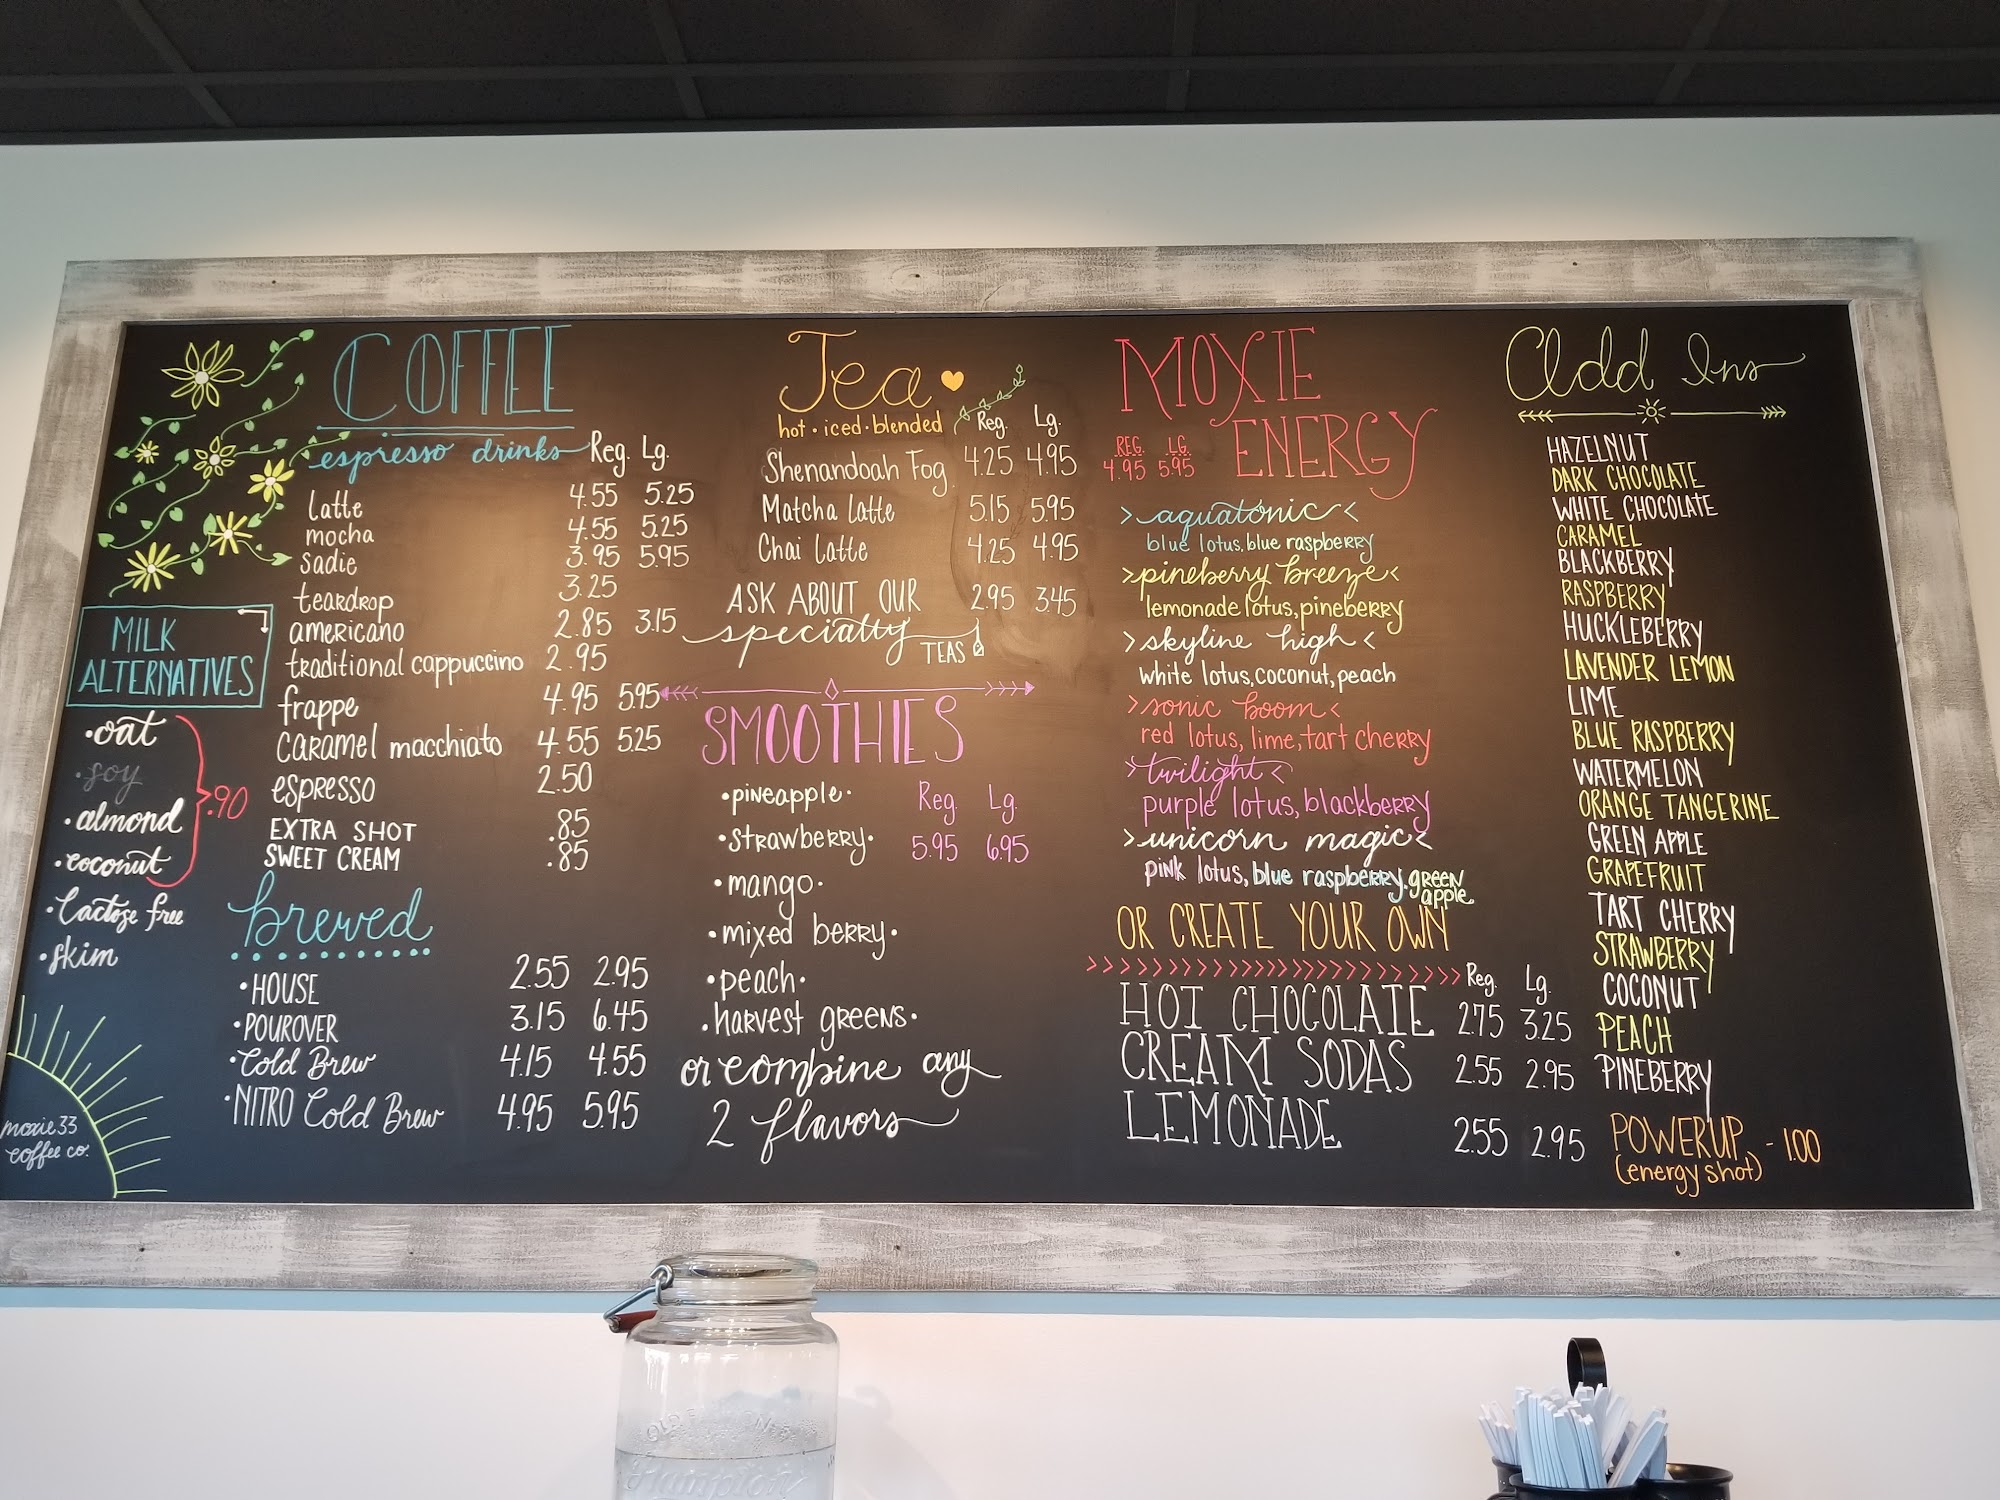 COFFEE
espresso drinks Reg. Lg.
latte 4.55 5.25
mocha 4.55 5.25
sadie 3.95 5.95
teardrop 3.25
americano 2.85 3.15
traditional cappuccino 2.95
frappe 4.95 5.95
caramel macchiato 4.55 5.25
espresso 2.50
EXTRA SHOT .85
SWEET CREAM .85
MILK
ALTERNATIVES
•oat
•soy
•almond
•coconut
.90
•Lactose free
•skim
brewed
•HOUSE 2.55 2.95
•POUROVER 3.15 6.45
•Cold Brew 4.15 4.55
•NITRO Cold Brew 4.95 5.95
moxie 33
coffee co.
Tea
hot•iced•blended Reg. Lg.
Shenandoah Fog 4.25 4.95
Matcha Latte 5.15 5.95
Chai Latte 4.25 4.95
ASK ABOUT OUR 2.95 3.45
specialty TEAS
SMOOTHIES
•pineapple• Reg. Lg.
•strawberry• 5.95 6.95
•mango•
•mixed berry•
•peach•
•harvest greens•
or combine any
2 flavors
MOXIE
ENERGY
REG. LG.
4.95 5.95
>aquatonic<
blue lotus, blue raspberry
>pineberry breeze<
lemonade lotus, pineberry
>skyline high<
white lotus, coconut, peach
>sonic boom<
red lotus, lime, tart cherry
>twilight<
purple lotus, blackberry
>unicorn magic<
pink lotus, blue raspberry, green
apple
OR CREATE YOUR OWN
>>>>>>>>>>>>>>>>>>>>>>> Reg. Lg.
HOT CHOCOLATE 2.75 3.25
CREAM SODAS 2.55 2.95
LEMONADE 2.55 2.95
Add Ins
HAZELNUT
DARK CHOCOLATE
WHITE CHOCOLATE
CARAMEL
BLACKBERRY
RASPBERRY
HUCKLEBERRY
LAVENDER LEMON
LIME
BLUE RASPBERRY
WATERMELON
ORANGE TANGERINE
GREEN APPLE
GRAPEFRUIT
TART CHERRY
STRAWBERRY
COCONUT
PEACH
PINEBERRY
POWERUP - 1.00
(energy shot)